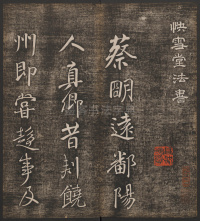 快雪堂法書
蔡明遠鄱陽
人真卿昔刺饒
州即嘗趍事及